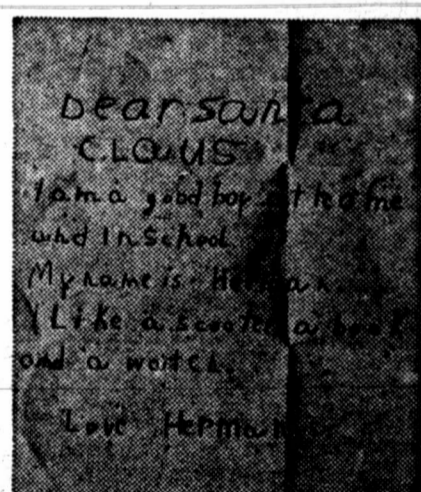 Dear Santa
CLAUS
I am a good boy at home
and In School
My name is Herman.
I Like a Scooter a book
and a watch.
Love Herman